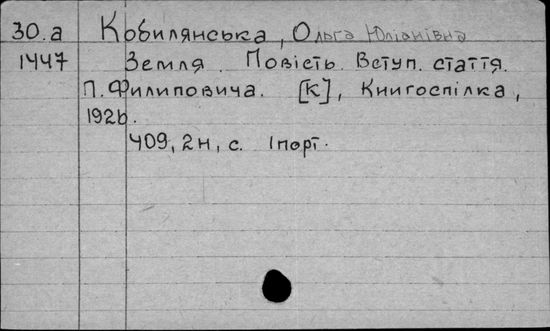 30.а Кобилянська, Ольга Юліанівна
1447 Земля. Повість. Вступ. стаття.
П. Филиповича. [К], Книгоспілка,
1926.
409, 2н, с. 1порт.